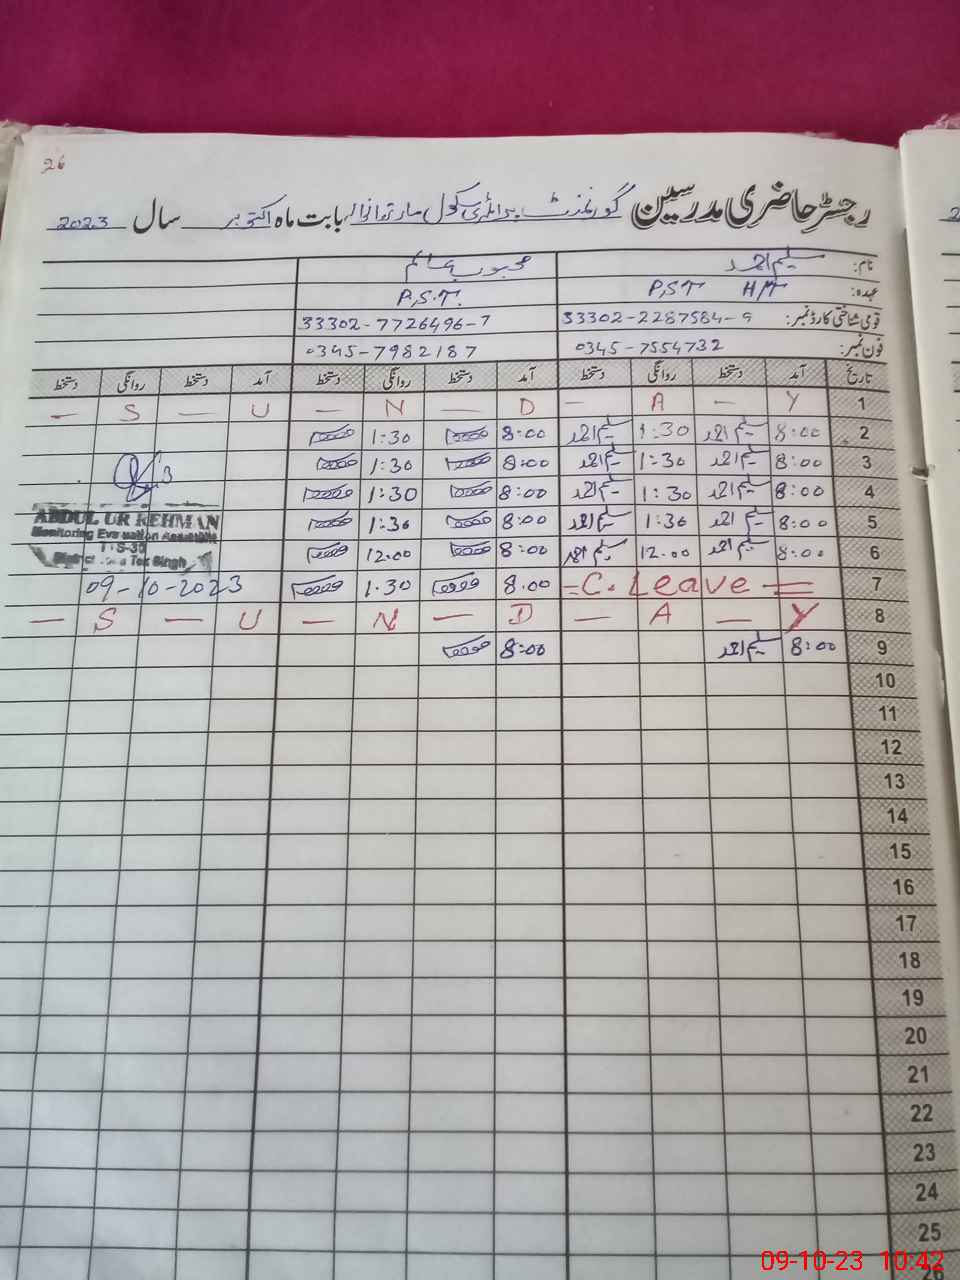 26
رجسٹر حاضری مدرسین گورنمنٹ پرائمری سکول بابت ماہ اکتوبر سال 2023
نام: سلیم احمد محبوب عالم
عہدہ: P.S.T H/T P.S.T.
قومی شناختی کارڈ نمبر: 33302-2287584-9 33302-7726496-7
فون نمبر: 0345-7554732 0345-7982187
تاریخ آمد دستخط روانگی دستخط آمد دستخط روانگی دستخط آمد دستخط روانگی دستخط
1 — S — U — N — D — A — Y
2 8:00 سلیم احمد 1:30 سلیم احمد 8:00 1:30
3 8:00 سلیم احمد 1:30 سلیم احمد 8:00 1:30
4 8:00 سلیم احمد 1:30 سلیم احمد 8:00 1:30
5 8:00 سلیم احمد 1:30 سلیم احمد 8:00 1:30
6 8:00 سلیم احمد 12.00 سلیم احمد 8:00 12.00
7 =C. Leave= 8.00 1.30
8 — S — U — N — D — A — Y
9 8:00 سلیم احمد 8:00
ABDUL UR REHMAN
Monitoring Evaluation Assistant
District Toba Tek Singh
09-10-2023
10
11
12
13
14
15
16
17
18
19
20
21
22
23
24
25
26
09-10-23 10:42